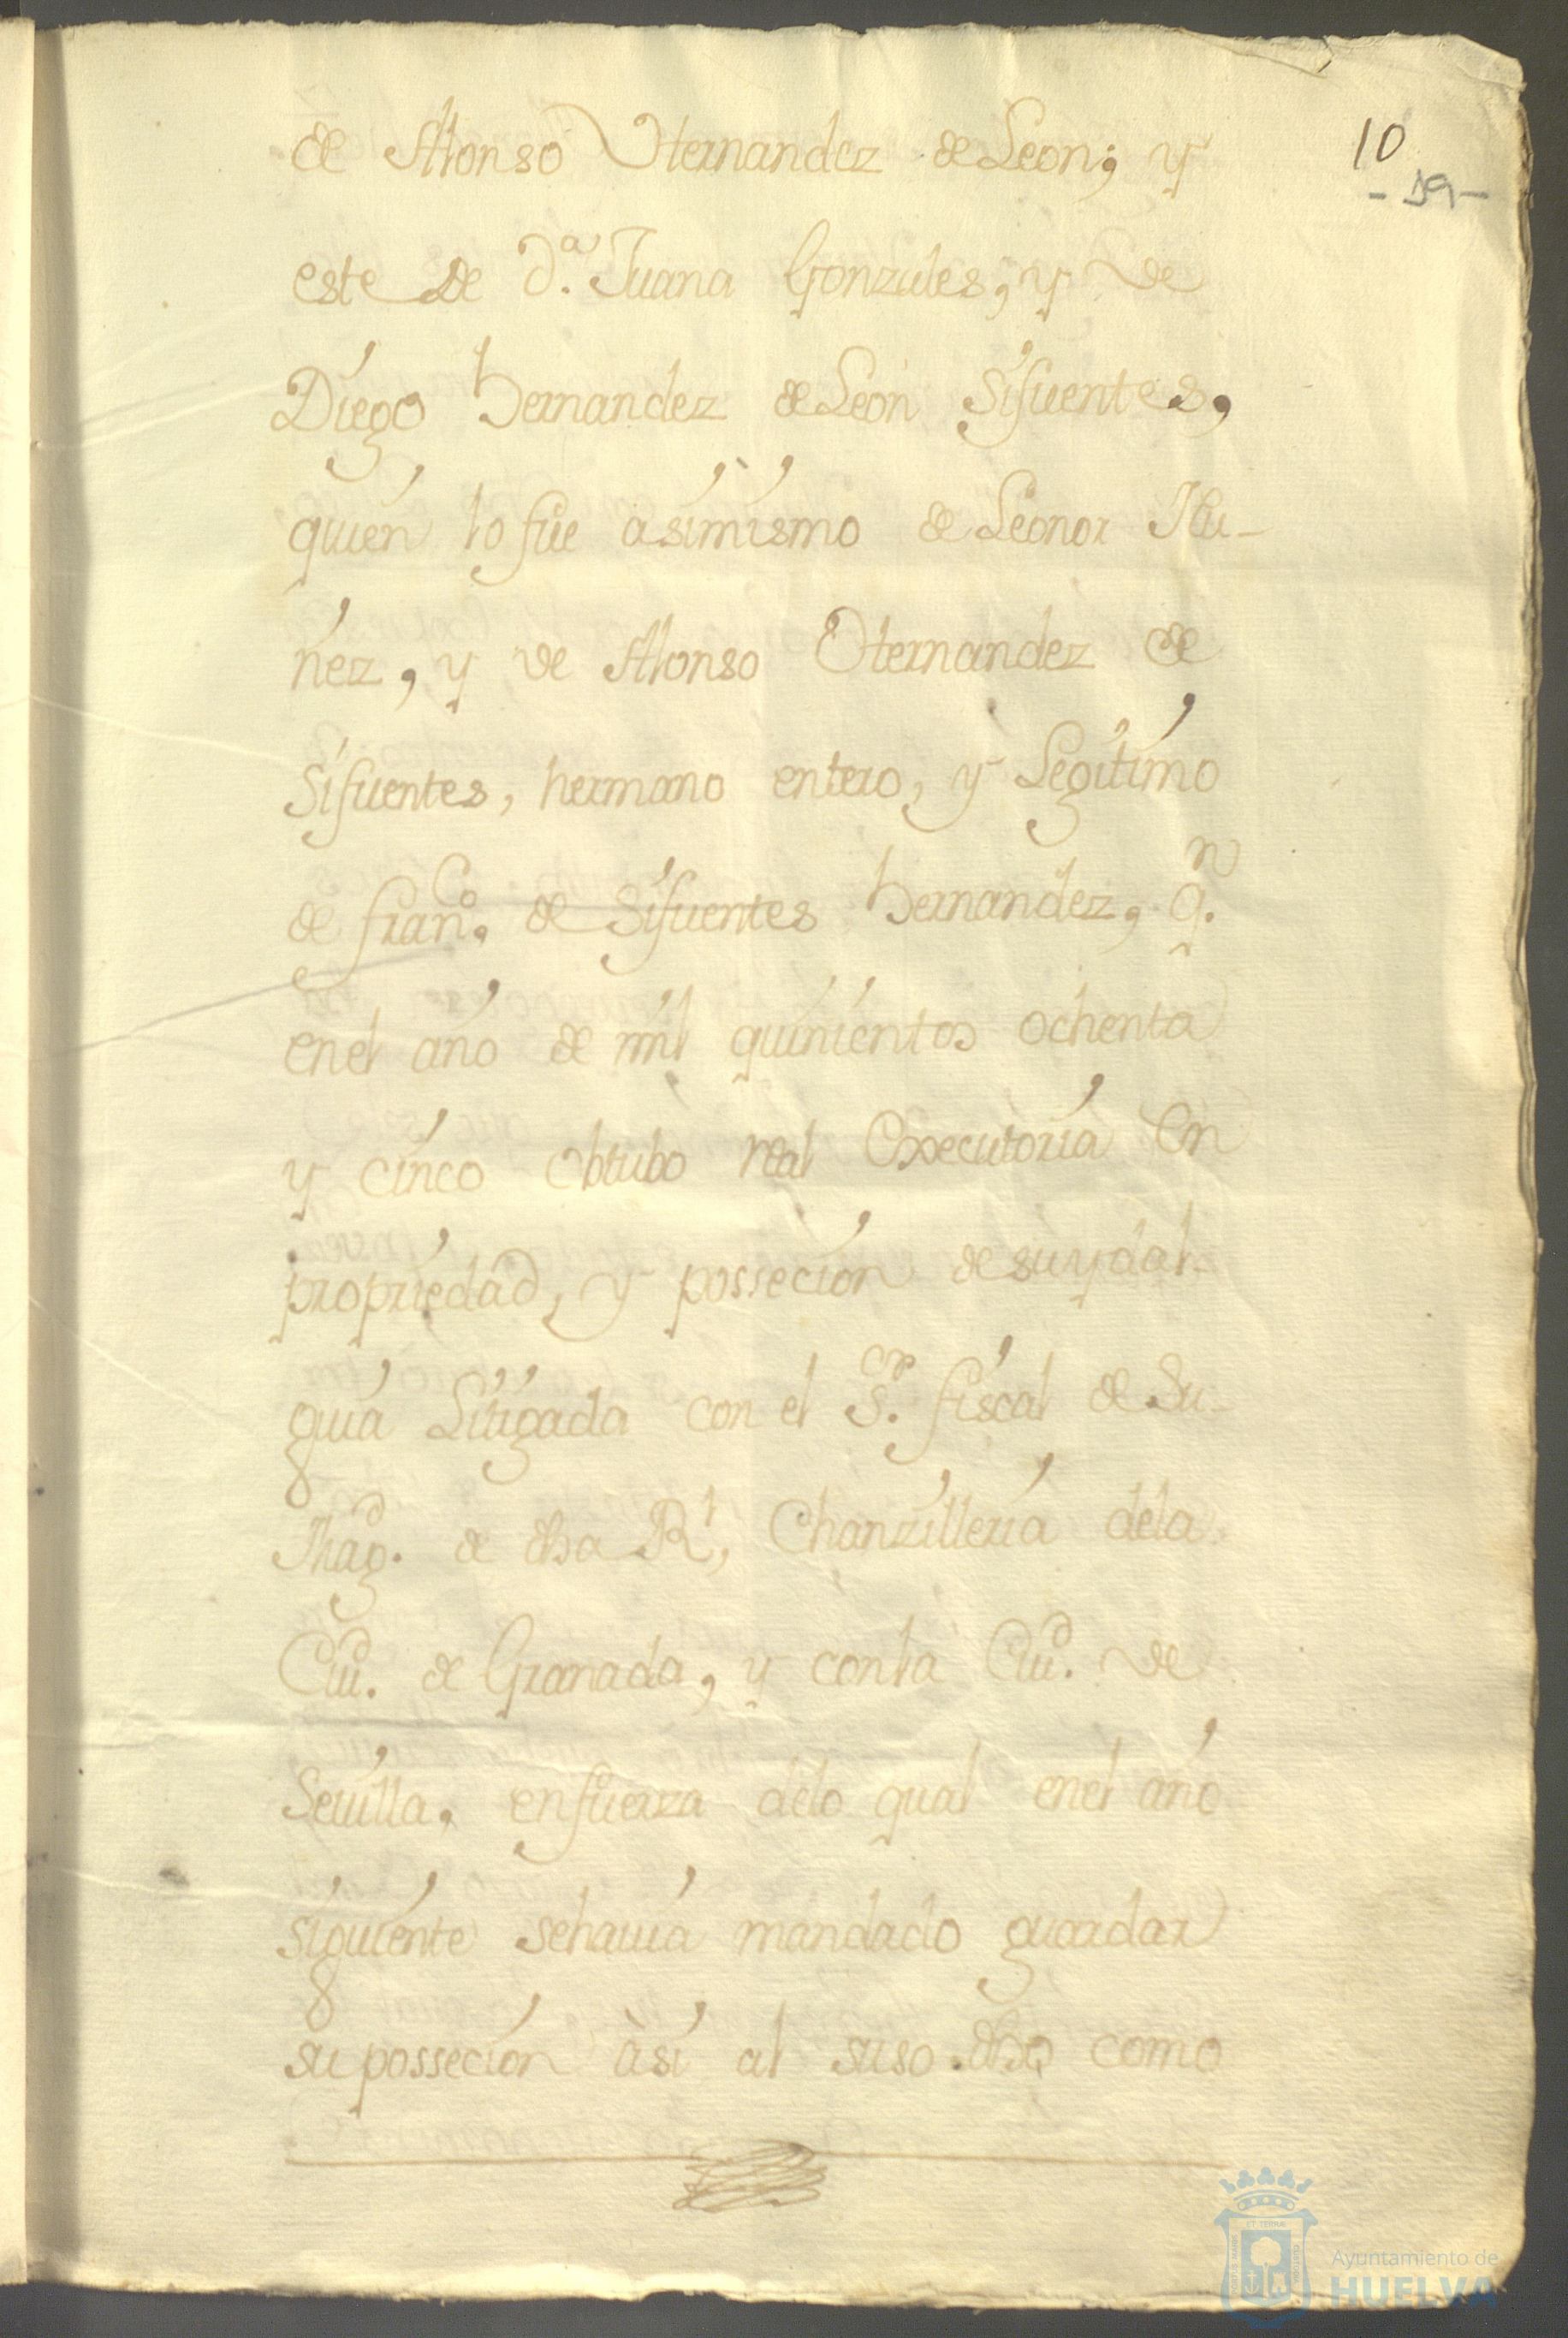 10
- 19 -
de Alonso Hernandez de Leon; y
este de D.ª Juana Gonzales, y de
Diego hernandez de Leon Sifuentes,
quien lo fue asimismo de Leonor Nu-
ñez, y de Alonso Hernandez de
Sifuentes, hermano entero, y Legitimo
de fran.co de Sifuentes hernandez, q.n
enel año de mil quinientos ochenta
y cinco obtubo real Executoria en
propriedad, y possecion de suydal-
guia Litigada con el S.or fiscal de Su
Mag.d de dha R.l Chanzilleria dela
Ciu.d de Granada, y conla Ciu.d de
Seuilla. enfuerza delo qual enel año
siguiente sehauia mandado guardar
su possecion àsi al suso dho como
Ayuntamiento de
HUELVA